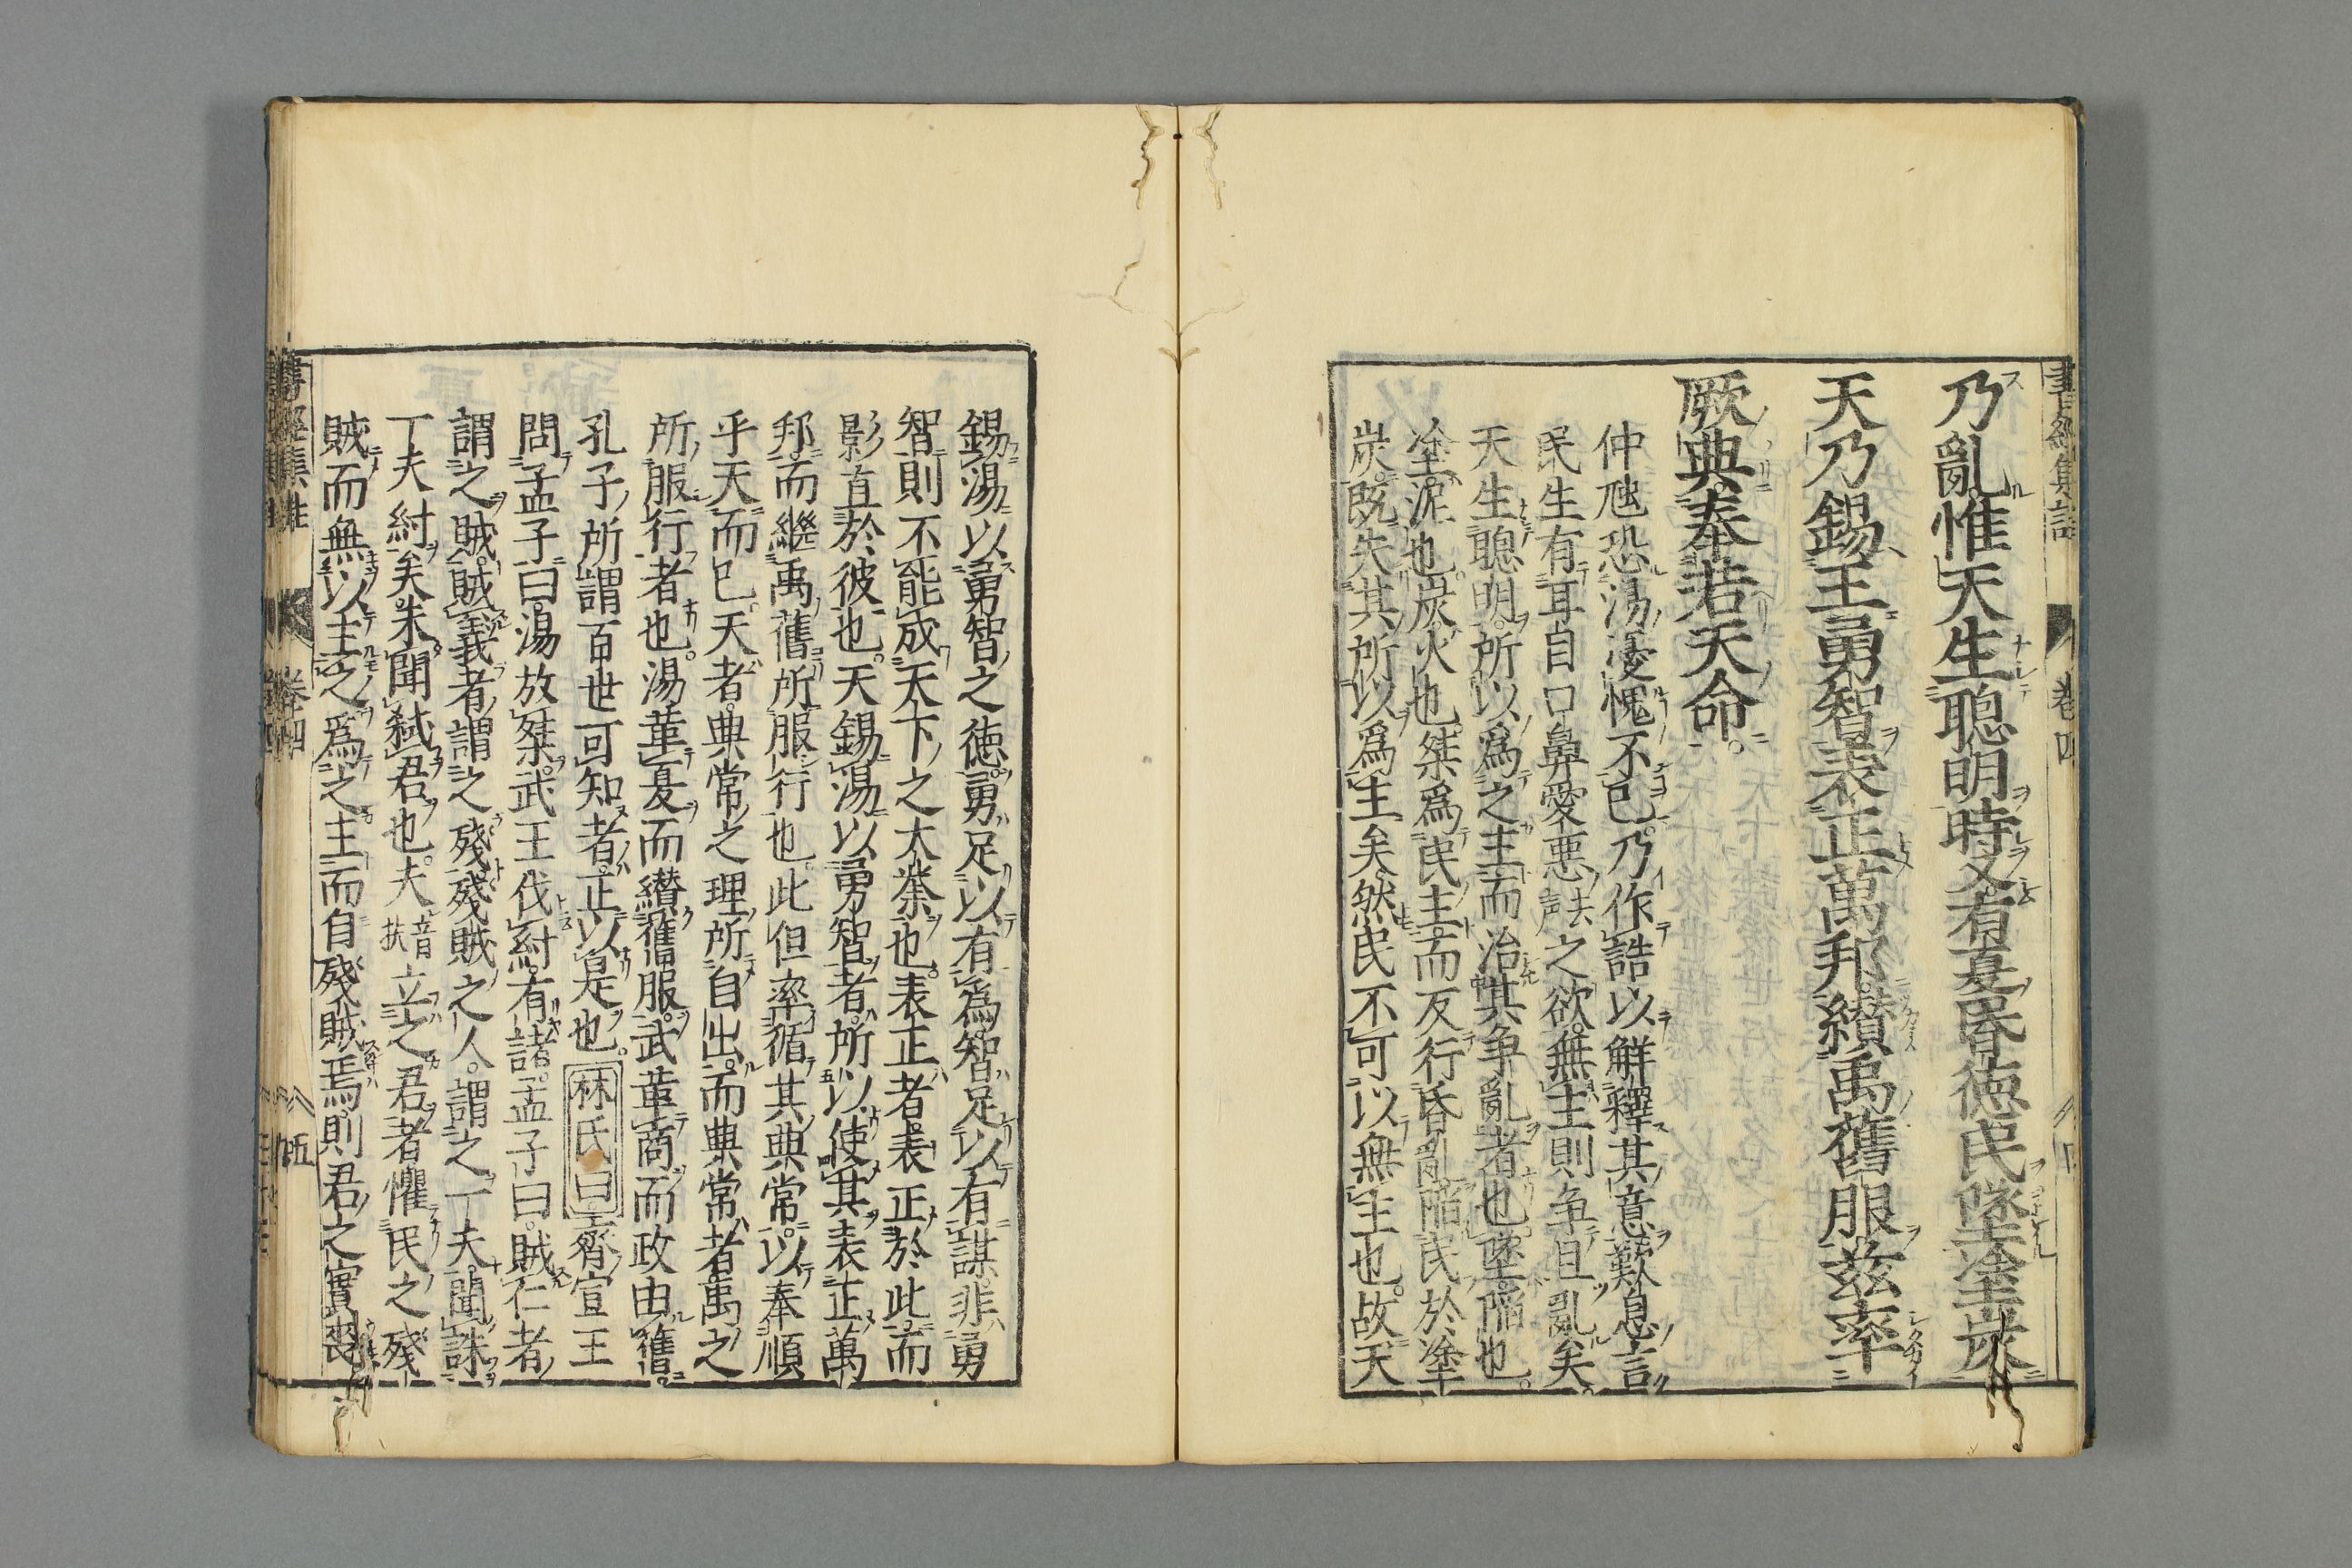 書經集註 卷四
乃亂惟天生聰明時乂有夏昏德民墜塗炭
天乃錫王勇智表正萬邦纘禹舊服茲率
厥典奉若天命
仲虺恐湯憂愧不已乃作誥以解釋其意歎息言
民生有耳目口鼻愛惡去聲之欲無主則爭且亂矣
天生聰明所以爲之主而治其爭亂者也墜陷也
塗泥也炭火也桀爲民主而反行昏亂陷民於塗
炭既失其所以爲主矣然民不可以無主也故天
錫湯以勇智之德勇足以有爲智足以有謀非勇
智則不能成天下之大業也表正者表正於此而
影直於彼也天錫湯以勇智者所以使其表正萬
邦而繼禹舊所服行也此但率循其典常以奉順
乎天而已天者典常之理所自出而典常者禹之
所服行者也湯革夏而纘舊服武革商而政由舊
孔子所謂百世可知者正以是也林氏曰齊宣王
問孟子曰湯放桀武王伐紂有諸孟子曰賊仁者
謂之賊賊義者謂之殘殘賊之人謂之一夫聞誅
一夫紂矣未聞弑君也夫音扶立之君者懼民之殘
賊而無以主之爲之主而自殘賊焉則君之實喪
書經集註 卷四 五